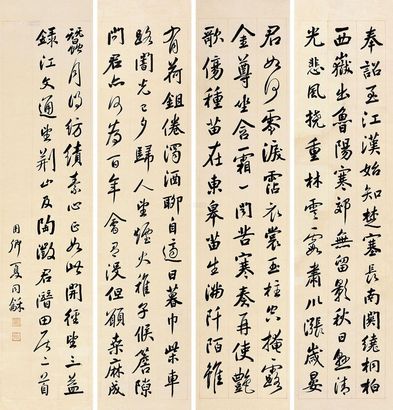 奉詔至江漢始知楚塞長南關繞桐柏
西嶽出魯陽寒郊無留影秋日懸清
光悲風撓重林雲霞肅川漲歲晏
君如何零淚霑衣裳玉柱空掩露
金尊坐含霜一聞苦寒奏再使艷
歌傷種苗在東皋苗生滿阡陌雖
有荷鉏倦濁酒聊自適日暮巾柴車
路闇光已夕歸人望煙火稚子候簷隙
問君亦何為百年會有役但願桑麻成
蠶月得紡績素心正如此開徑望三益
錄江文通望荊山及陶徵君潛田居二首
用卿夏同龢